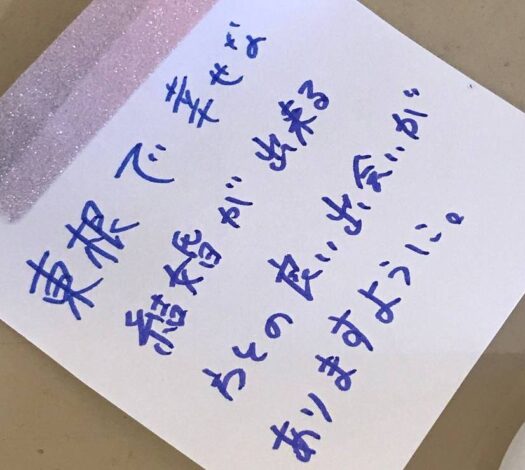 東根で幸せな
結婚が出来る
方との良い出会いが
ありますように。